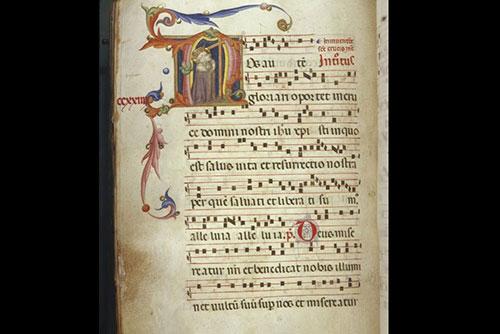 inuentione
sce crucis
Nos au tē Introitus
gloriari oportet in cru
ce domini nostri ihu xpi sti in quo
est salus uita et resurrectio nostra
per quē saluati et libera ti su m
alle luia alle lu ia. p̄. Deus mise
reatur nr̄i et benedicat nobis illumi
net uultū suū sup nos et misereatur